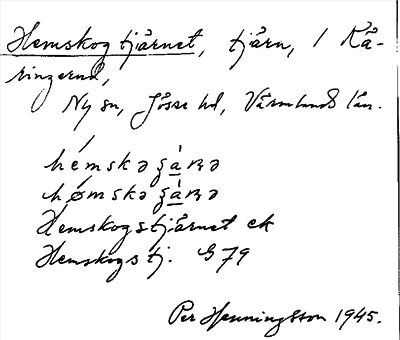 Hemskogtjärnet, tjärn, i Kä-
ringerud,
Ny sn, Jösse hd, Värmlands län.
hémskə ʂà̱ɳə
hǿmskə ʂà̱ɳə
Hemskogstjärnet ek
Hemskogstj. G 79
Per Henningsson 1945.